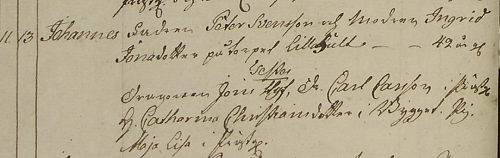 11. 13 Johannes Fadren Peter Svensson och Modren Ingrid
Jonsdotter på torpet Lilla Hult — — 42 år
Testes
Dragonen Jon, Dr. Carl Carlson i
H. Catharina Christiansdotter i Bygget. Pig.
Maja Lisa i